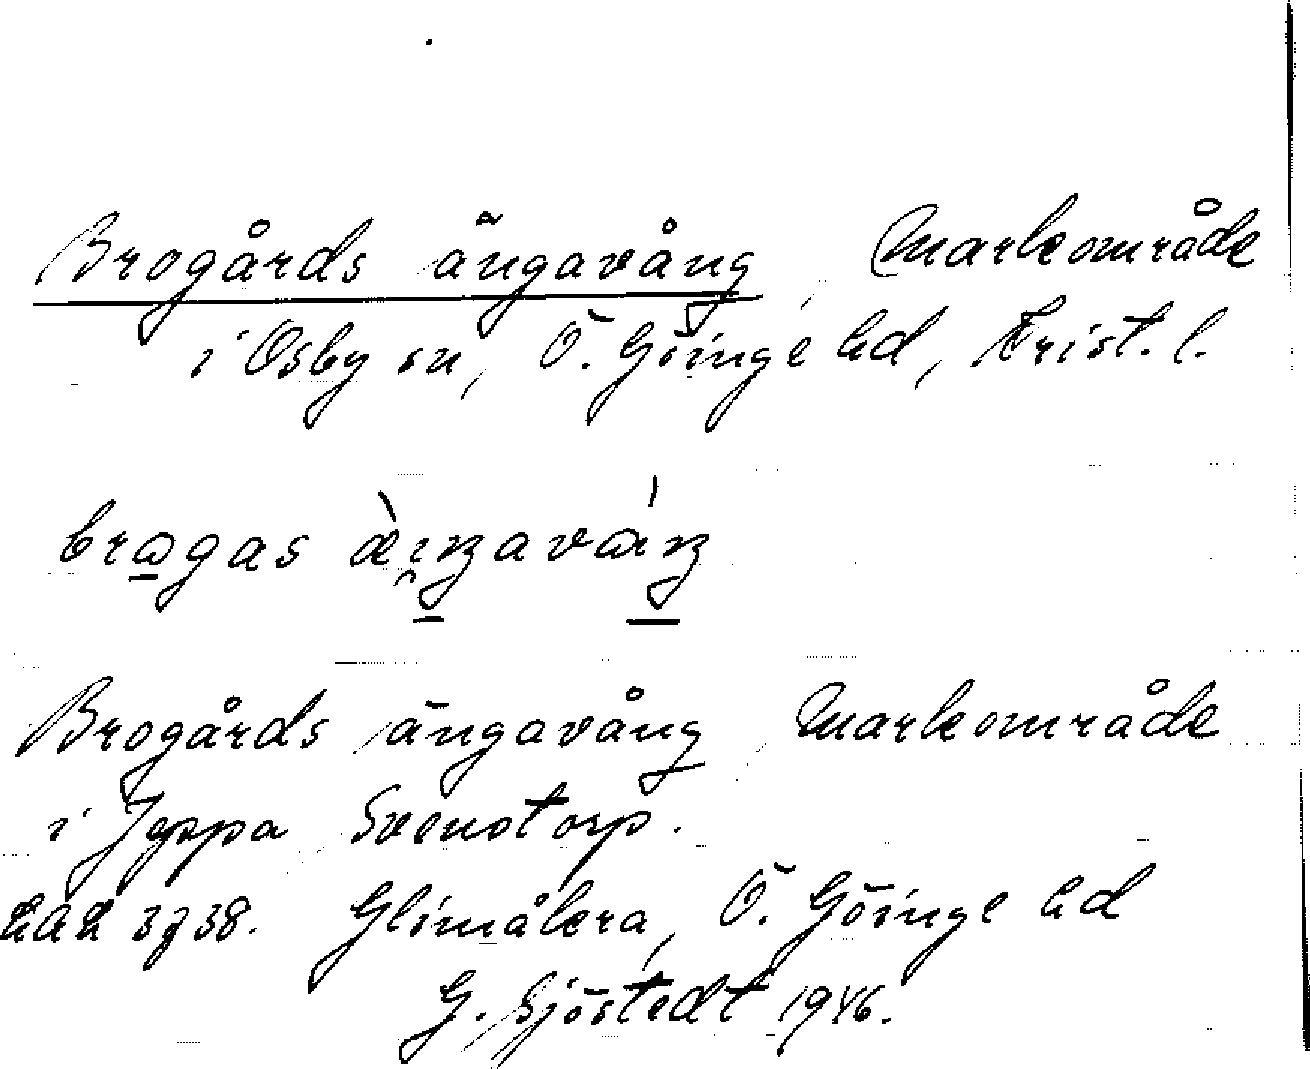 Brogårds ängavång Markområde
i Osby sn, Ö. Göinge hd, Krist. l.
bragas
Brogårds ängavång Markområde
i Jeppa Svenstorp.
Glimåkra, Ö. Göinge hd
G. Sjöstedt 1946.